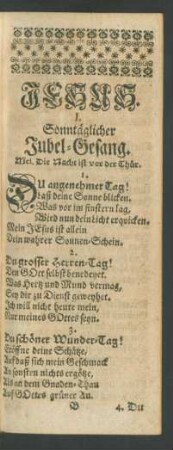 JESUS.
I.
Sonntäglicher
Jubel-Gesang.
Mel. Die Nacht ist vor der Thür.
1.
DU angenehmer Tag!
Laß deine Sonne blicken,
Was vor im finstern lag,
Wird nun dein Licht erquicken.
Mein JEsus ist allein
Dein wahrer Sonnen-Schein.
2.
Du grosser Herren-Tag!
Von GOtt selbst benedeyet.
Was Hertz und Mund vermag,
Sey dir zu Dienst geweyhet.
Ich will nicht heute mein,
Nur meines GOttes seyn.
3.
Du schöner Wunder-Tag!
Eröffne deine Schätze,
Auf daß sich mein Geschmack
An sonsten nichts ergötze,
Als an dem Gnaden-Thau
Auf GOttes grüner Au.
B
4. Du